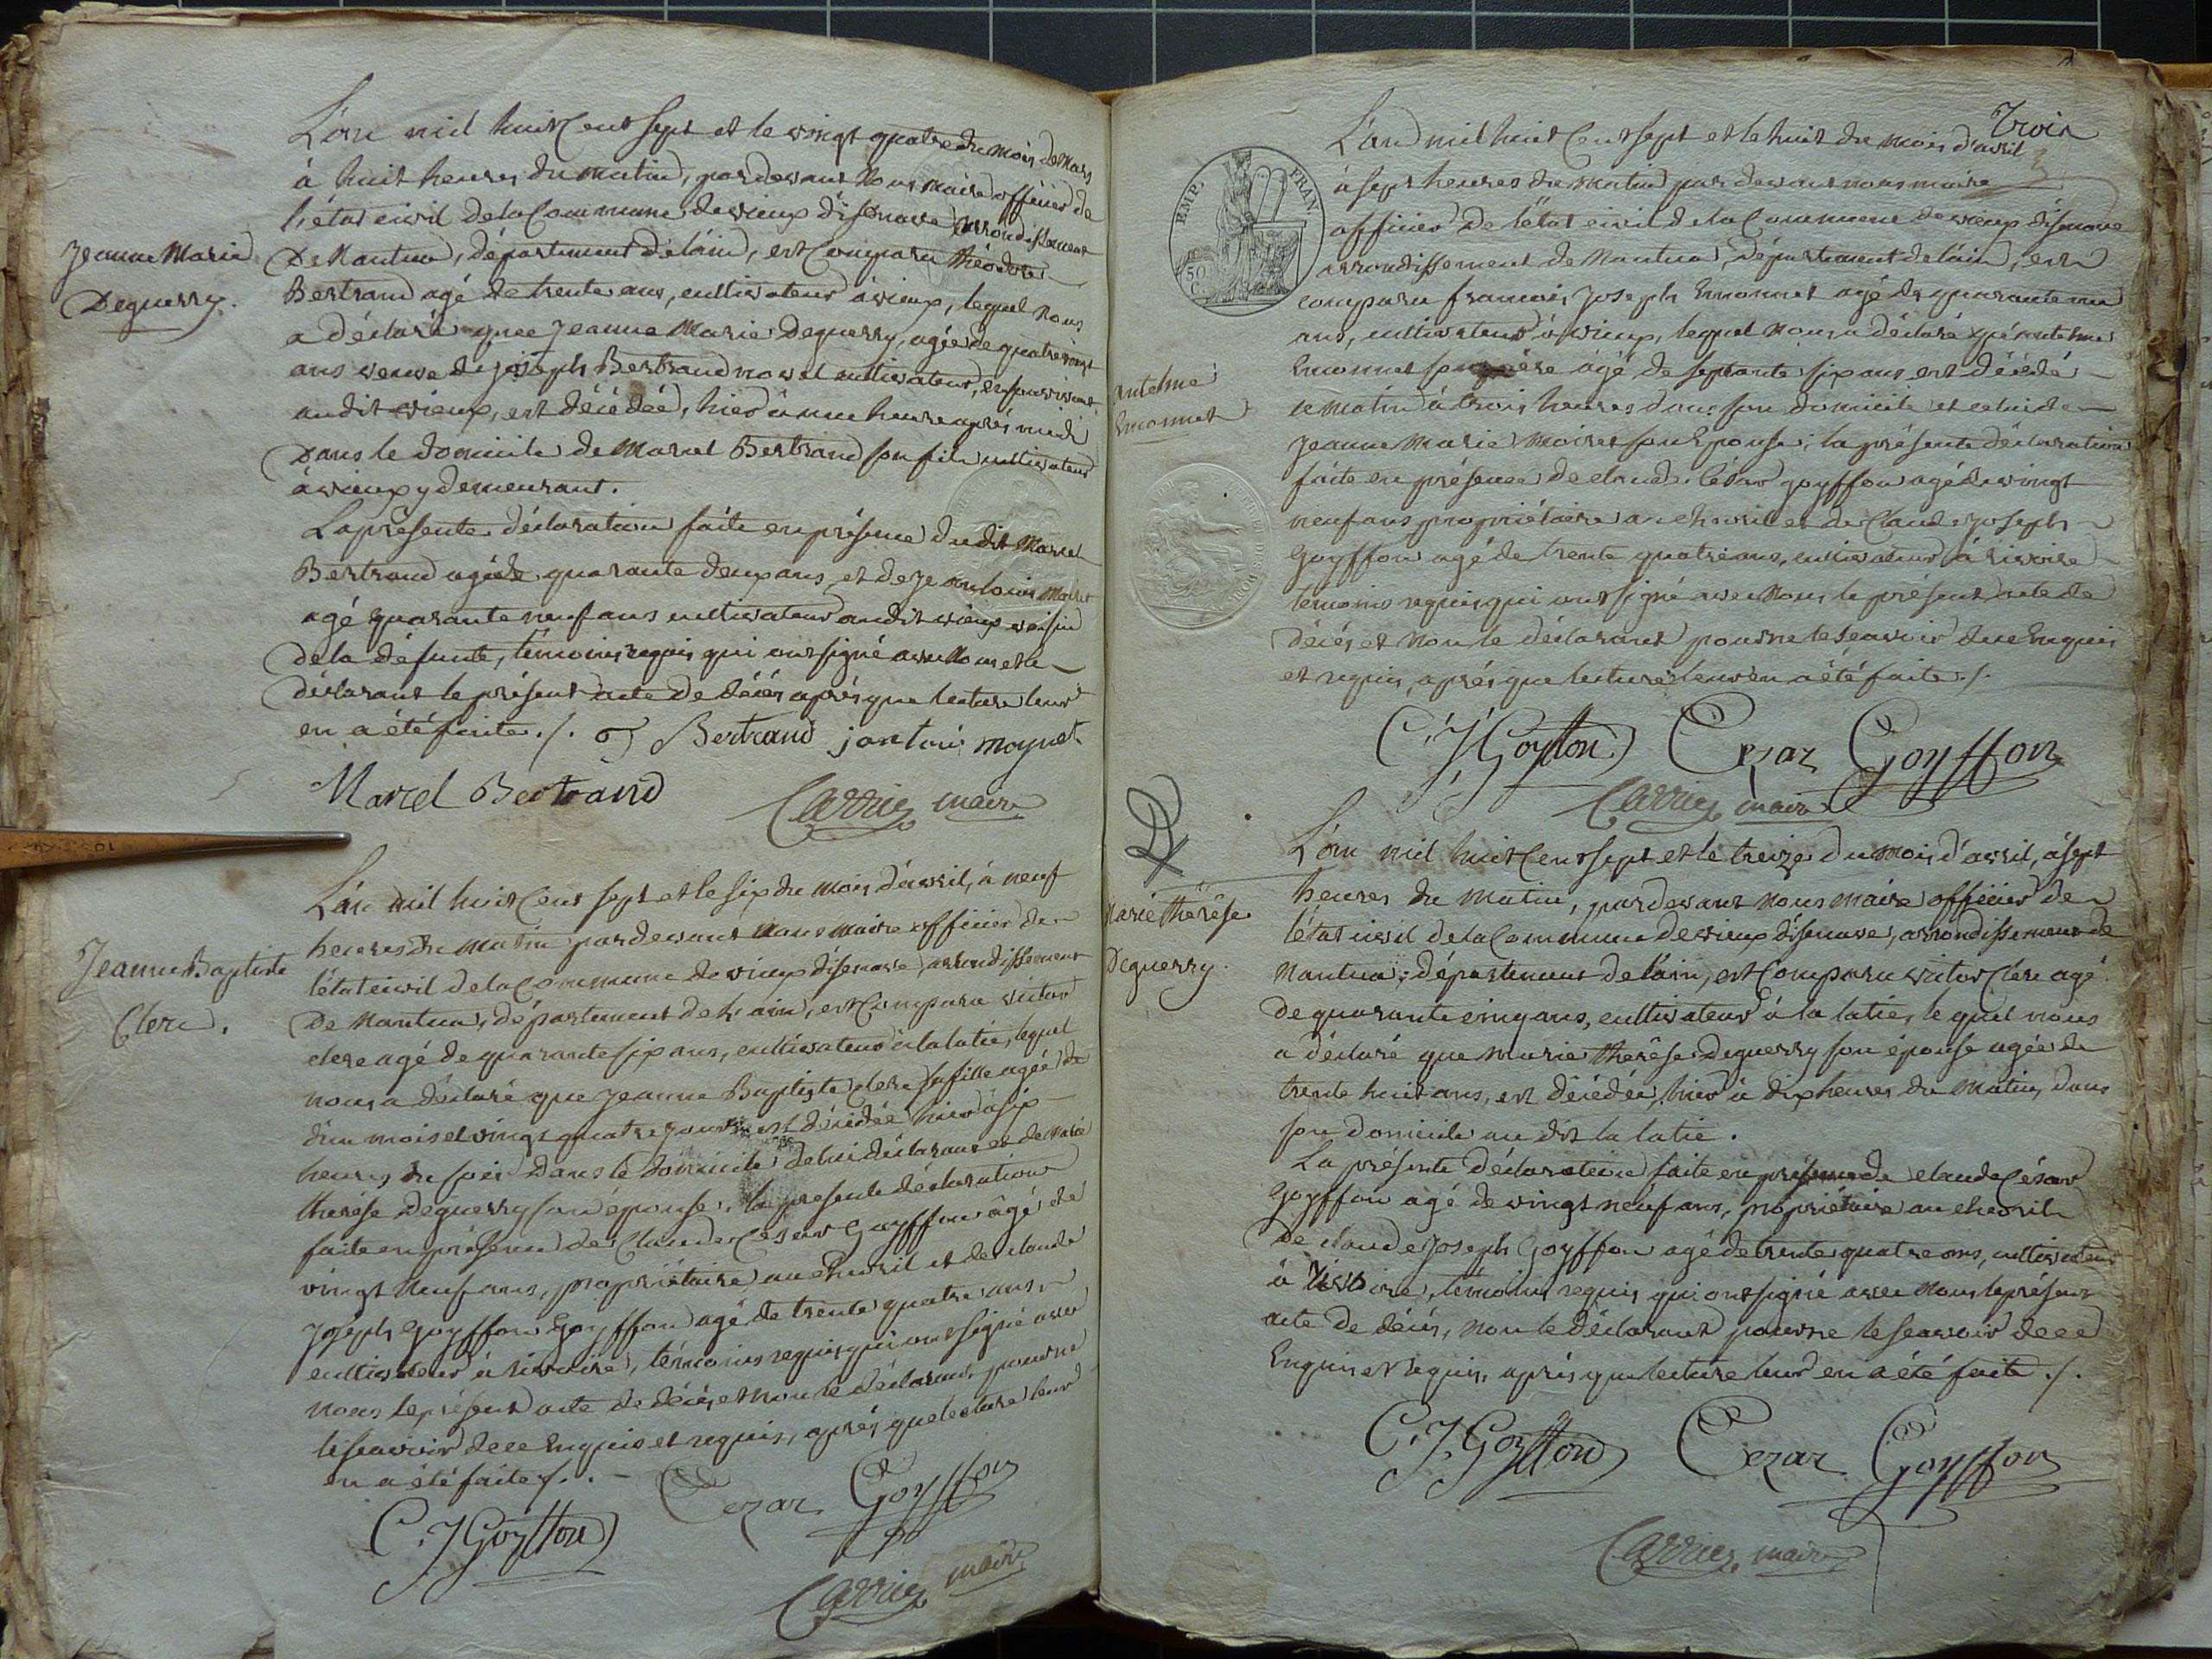 L'an mil huit Cent sept et le vingt quatre du mois de Mars
à huit heures du matin, pardevant Nous maire officier de
l'état civil de la Commune de vieux d'isenave arrondissement
De Nantua, département de l'ain, est Comparu théodore
Jeanne Marie
Deguerry.
Bertrand agé de trente ans, cultivateur à vieux, lequel Nous
a déclaré que Jeanne Marie Deguerry, agée de quatrevingt
ans veuve de joseph Bertrand cultivateur,
audit vieux, est décédée, hier à une heure après midi
Dans le domicile de Marcel Bertrand son fils cultivateur
à vieux y demeurant.
La présente déclaration faite en présence dudit Marcel
Bertrand agé de quarante deux ans et de
agé quarante neuf ans cultivateur audit vieux voisin
de la défunte, témoins requis qui ont signé avec Nous et le
déclarant le présent acte de décés après que lecture leur
en a été faite ./. Bertrand
Marcel Bertrand Carrier maire
L'an mil huit Cent sept et le six du mois d'avril, à neuf
heures du matin pardevant Nous maire officier de
l'état civil de la Commune de vieux d'isenave, arrondissement
De Nantua, département de L'ain, est Comparu victor
Jeanne Baptiste
Clerc.
clerc agé de quarante six ans, cultivateur à la latie, lequel
nous a déclaré que Jeanne Baptiste clerc sa fille agée de
d'un mois et vingt quatre jours est décédée hier à six
heures du soir Dans le domicile de lui déclarant et de Marie
therése Deguerry son épouse. la presente déclaration
faite en présence de Claude Cesar Goyffon âgé de
vingt Neuf ans, propriétaire au chevril et de claude
Joseph Goyffon Goyffon agé de trente quatre ans
cultivateur à rivoire, témoins requis qui ont signé avec
nous le présent acte de décés, et Non le déclarant, pour ne
le scavoir de ce Enquis et requis, après que lecture leur
en a été faite ./.
C. J Goyffon Cezar Goyffon
Carrier maire
Trois
L'an mil huit Cent sept et le huit du mois d'avril
à sept heures du matin par devant nous maire
EMP. FRAN.
50 C.
officier de l'état civil de la Commune de vieux d'isenave
arrondissement de Nantua, département de l'ain, est
comparu francois Joseph Emonnet agé de quarante un
ans, cultivateur à vieux, lequel Nous a déclaré qu'antelme
antelme
Emonnet
Emonnet son père âgé de septante six ans est décédé
le matin à trois heures dans son domicile et celui de
Jeanne Marie Moiret son Epouse; la présente déclaration
faite en présence de claude césar goyffon agé de vingt
neuf ans propriétaire au chevril et de Claude Joseph
Goyffon agé de trente quatre ans, cultivateur à rivoire
temoins requis qui ont signé avec Nous le présent acte de
décés et Non le déclarant pour ne le scavoir de ce Enquis
et requis, après que lecture leur en a été faite ./.
C. J Goyffon Cezar Goyffon
Carrier maire
L'an mil huit Cent sept et le treize du mois d'avril, à sept
heures du matin, pardevant nous maire officier de
Marie therése
Deguerry.
l'état civil de la Commune de vieux d'isenave, arrondissement de
Nantua, département de l'ain, est Comparu victor Clerc agé
de quarante cinq ans, cultivateur à la latie, le quel nous
a déclaré que marie therése Deguerry son épouse agée de
trente huit ans, est décédée, hier à dix heures du Matin, dans
son domicile au dit la latie.
La présente déclaration faite en présence de claude César
Goyffon agé de vingt neuf ans, propriétaire au chevril
De claude Joseph Goyffon agé de trente quatre ans, cultivateur
à rivoire, témoins requis qui ont signé avec Nous le présent
acte de décés, Non le déclarant pour ne le scavoir de ce
Enquis et requis, après que lecture leur en a été faite ./.
C. J. Goyffon Cezar Goyffon
Carrier maire